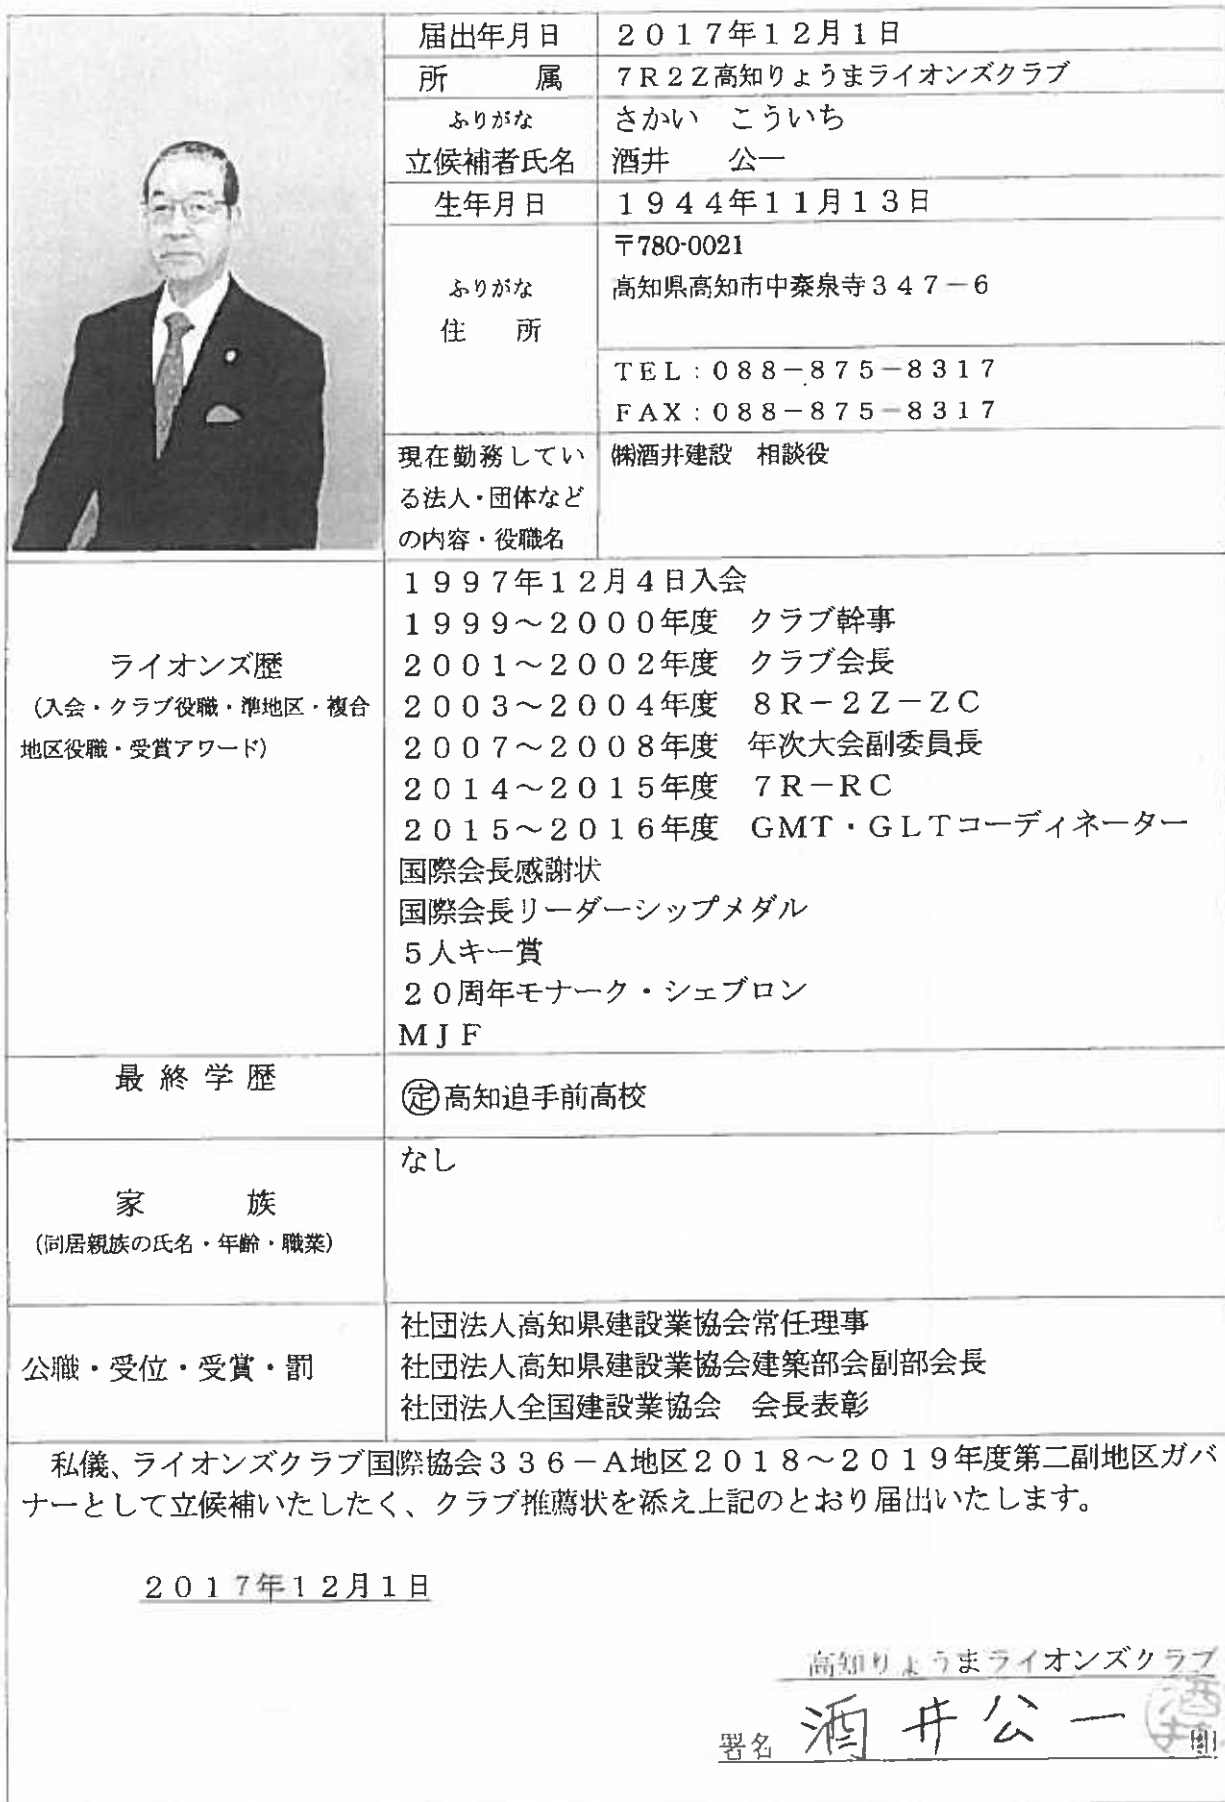 届出年月日 2017年12月1日
所 属 7R2Z高知りょうまライオンズクラブ
ふりがな さかい こういち
立候補者氏名 酒井 公一
生年月日 1944年11月13日
〒780-0021
ふりがな 高知県高知市中秦泉寺347-6
住 所
TEL:088-875-8317
FAX:088-875-8317
現在勤務してい ㈱酒井建設 相談役
る法人・団体など
の内容・役職名
1997年12月4日入会
1999~2000年度 クラブ幹事
ライオンズ歴 2001~2002年度 クラブ会長
(入会・クラブ役職・準地区・複合 2003~2004年度 8R-2Z-ZC
地区役職・受賞アワード) 2007~2008年度 年次大会副委員長
2014~2015年度 7R-RC
2015~2016年度 GMT・GLTコーディネーター
国際会長感謝状
国際会長リーダーシップメダル
5人キー賞
20周年モナーク・シェブロン
MJF
最終学歴 定高知追手前高校
なし
家 族
(同居親族の氏名・年齢・職業)
社団法人高知県建設業協会常任理事
公職・受位・受賞・罰 社団法人高知県建設業協会建築部会副部会長
社団法人全国建設業協会 会長表彰
私儀、ライオンズクラブ国際協会336-A地区2018~2019年度第二副地区ガバ
ナーとして立候補いたしたく、クラブ推薦状を添え上記のとおり届出いたします。
2017年12月1日
高知りょうまライオンズクラブ
署名 酒井公一 印